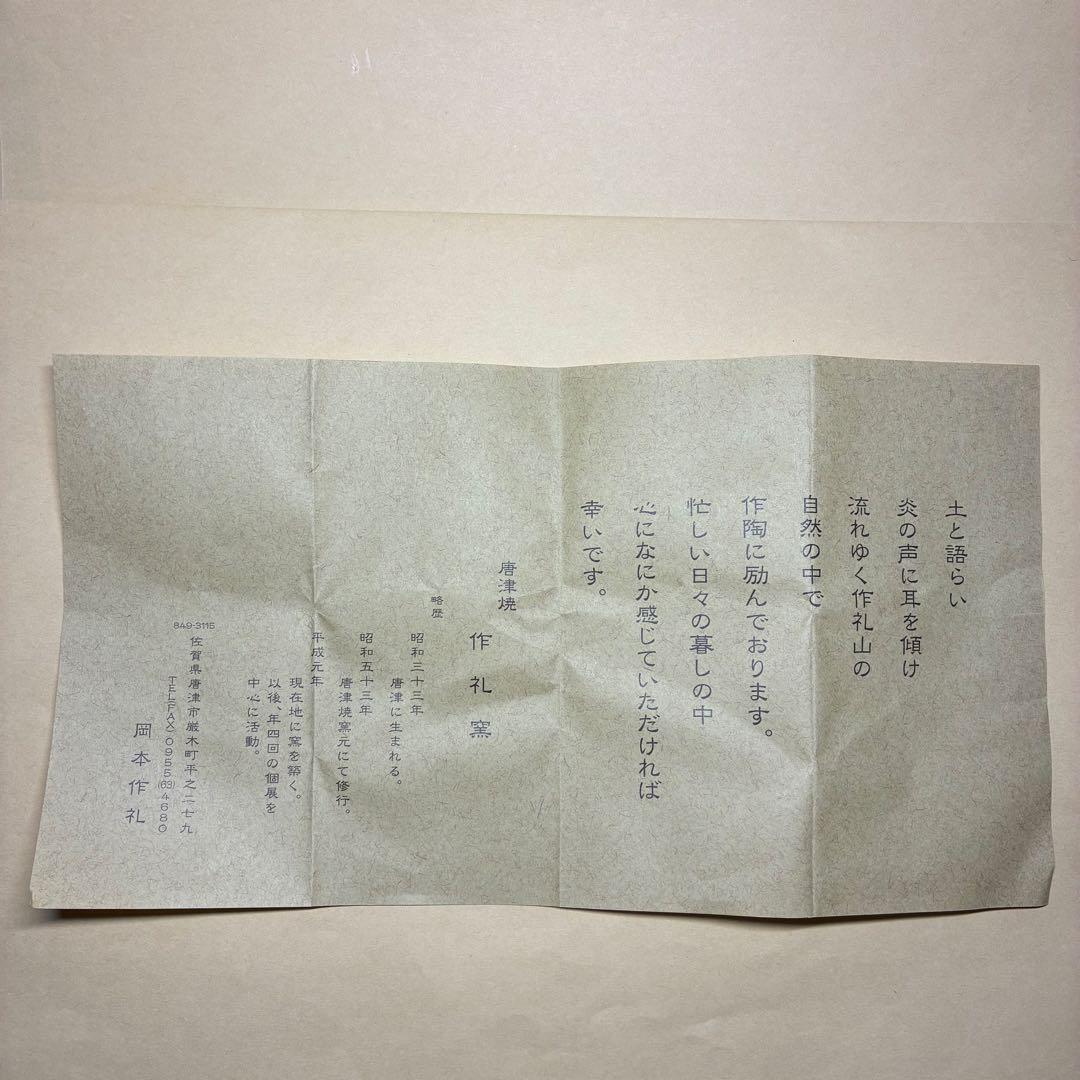 土と語らい
炎の声に耳を傾け
流れゆく作礼山の
自然の中で
作陶に励んでおります。
忙しい日々の暮しの中
心になにか感じていただければ
幸いです。
唐津焼
作礼窯
略歴
昭和三十三年
唐津に生まれる。
昭和五十三年
唐津焼窯元にて修行。
平成元年
現在地に窯を築く。
以後、年四回の個展を
中心に活動。
849-3115
佐賀県唐津市厳木町平之二七九
TEL(FAX)0955(63)4680
岡本作礼